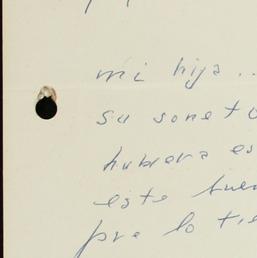 mi hija..
su soneto
hubiera es
este
pre lo tie